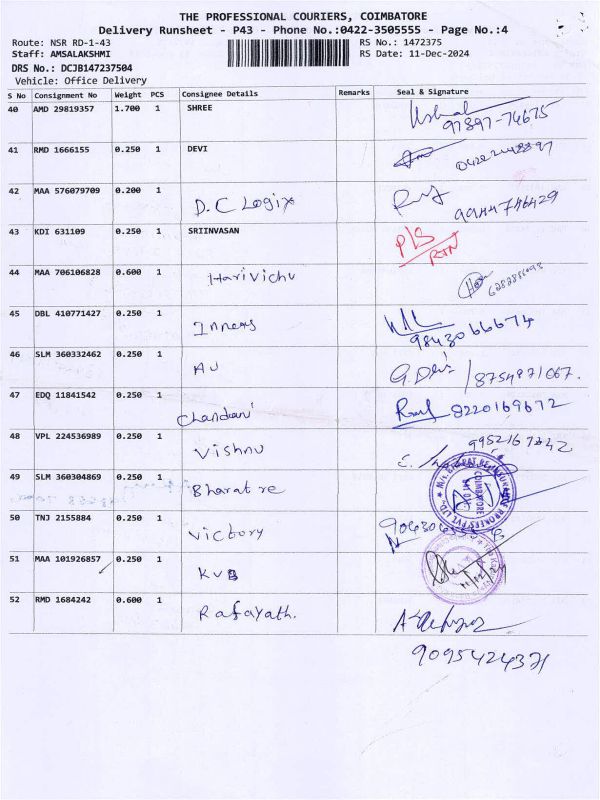 THE PROFESSIONAL COURIERS, COIMBATORE
Delivery Runsheet - P43 - Phone No.:0422-3505555 - Page No.:4
Route: NSR RD-1-43 RS No.: 1472375
Staff: AMSALAKSHMI RS Date: 11-Dec-2024
DRS No.: DCJB147237504
Vehicle: Office Delivery
S No Consignment No Weight PCS Consignee Details Remarks Seal & Signature
40 AMD 29819357 1.700 1 SHREE
97897-74675
41 RMD 1666155 0.250 1 DEVI
42 MAA 576079709 0.200 1 D.C Logix
9944746429
43 KDI 631109 0.250 1 SRIINVASAN P/S
RTN
44 MAA 706106828 0.600 1 Harivichu
45 DBL 410771427 0.250 1 Inners
9843066674
46 SLM 360332462 0.250 1 AU G.Devi /8754871067.
47 EDQ 11841542 0.250 1 Chandani 8220169672
48 VPL 224536989 0.250 1 Vishnu
49 SLM 360304869 0.250 1 Bharat re
COIMBATORE
50 TNJ 2155884 0.250 1 Victory
51 MAA 101926857 0.250 1 KVB
52 RMD 1684242 0.600 1 Rafayath.
9095424371